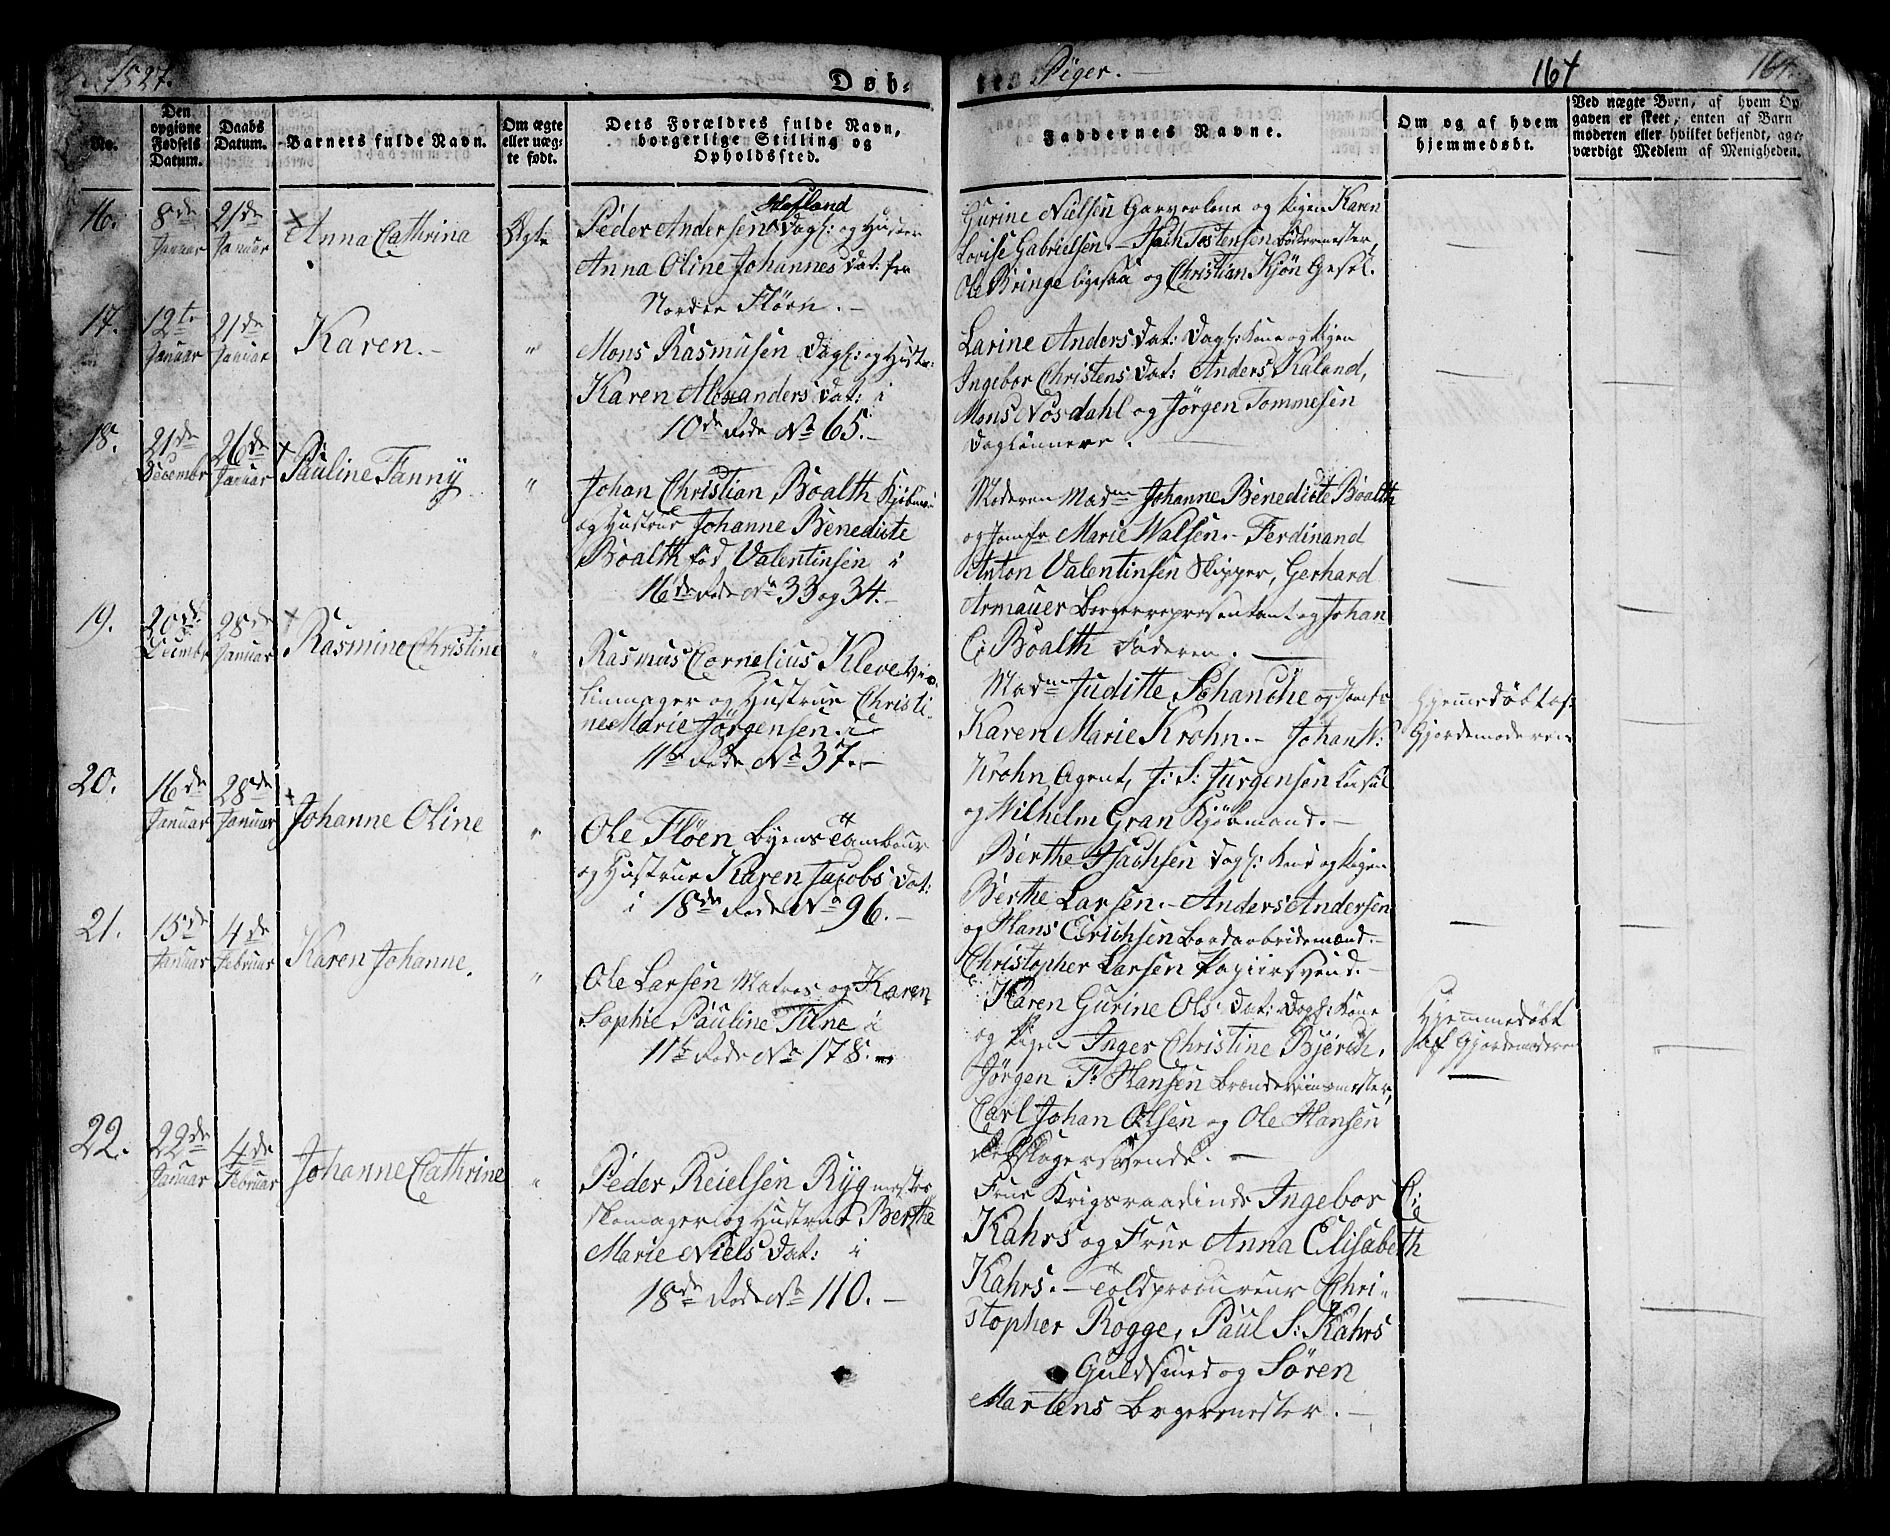 1827.
Døb-
te Piger.
164
164.
No.
Den opgivne Fødsels Datum.
Daabs Datum.
Barnets fulde Navn.
Om ægte eller uægte født.
Dets Forældres fulde Navn, borgerlige Stilling og Opholdssted.
Faddernes Navne.
Om og af hvem hjemmedøbt.
Ved uægte Børn, af hvem Opgaven er skeet, enten af Barnmoderen eller hvilket bekjendt, agtværdigt Medlem af Menigheden.
16.
8de Januar
21de Januar
Anna Cathrina
Ægte
Peder Andersen Dagl: og Hustru
Anna Oline Johannes Dat: fra
Nordre Fløen.
Gurine Nielsen Garverkone og Pigen Karen
Lovise Gabrielsen. - Isach Tostensen Bødkermester,
Ole Bringe ligesaa og Christian Kjøn Gesel.
17.
12te Januar
21de Januar
Karen.
"
Mons Rasmusen Dagl: og Hustr:
Karen Alexanders Dat: i
10de Rode No 65.
Larine Anders Dat: Dagl: Kone og Pigen
Ingebor Christens Dat: Anders Kaland,
Mons Nosdahl og Jørgen Tommesen
Daglønnere.
18.
21de December
26de Januar
Pauline Fanny
"
Johan Christian Boalth Kjøbm:
og Hustrue Johanne Benedicte
Boalth fød Valentinsen i
16de Rode No 33 og 34.
Moderen Madme Johanne Benedicte Boalth
og Jomfr Marie Walsen. - Ferdinand
Anton Valentinsen Skipper, Gerhard
Armauer Borgerrepresentant og Johan
C: Boalth Faderen.
19.
20de Decembr
28de Januar
Rasmine Christine
"
Rasmus Cornelius Kleve Vio-
linmager og Hustrue Christi-
ne Marie Jørgensen. i
11te Rode No 37.
Madme Juditte Schanche og Jomfr
Karen Marie Krohn. - Johan W:
Krohn Agent, J: S: Jurgensen Consul
og Wilhelm Gran Kjøbmand.
Hjemmedøbt af
Gjordemoderen
20.
16de Januar
28de Januar
Johanne Oline
"
Ole Fløen Byens Tambour
og Hustrue Karen Jacobs Dat:
i 18de Rode No 96.
Berthe Isachsen Dagl: Kone og Pigen
Berthe Larsen. - Anders Andersen
og Hans Erichsen Bordarbeidsmænd.
Christopher Larsen Papiirsvend.
21.
15de Januar
4de Februar
Karen Johanne.
"
Ole Larsen Matros og Karen
Sophie Pauline Tilne i
11te Rode No 178.
Karen Gurine Ols Dat: Dagl: Kone
og Pigen Inger Christine Bjerck.
Jørgen F: Hansen Brændeviinsmester,
Carl Johan Olsen og Ole Hansen
Rebslagersvende.
Hjemmedøbt
af Gjordemoderen
22.
22de Januar
4de Februar
Johanne Cathrine
"
Peder Reielsen Ryg mester
skomager og Hustrue Berthe
Marie Niels Dat: i
18de Rode No 110.
Frue Krigsraadinde Ingebor C:
Kahrs og Frue Anna Elisabeth
Kahrs. - Toldprocureur Chri-
stopher Rogge, Paul S: Kahrs
Guldsmed og Søren
Martens Bagermester.